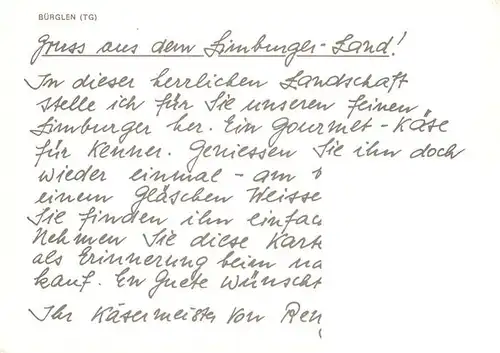 BÜRGLEN (TG)
Gruss aus dem Limburger-Land!
In dieser herrlichen Landschaft
stelle ich für Sie unseren feinen
Limburger her. Ein Gourmet-Käse
für Kenner. Geniessen Sie ihn doch
wieder einmal - am
einem Gläschen Weisse
Sie finden ihn einfac
Nehmen Sie diese Kart
als Erinnerung beim na
kauf. En Guete wünscht
Ihr Käsermeister von Ren